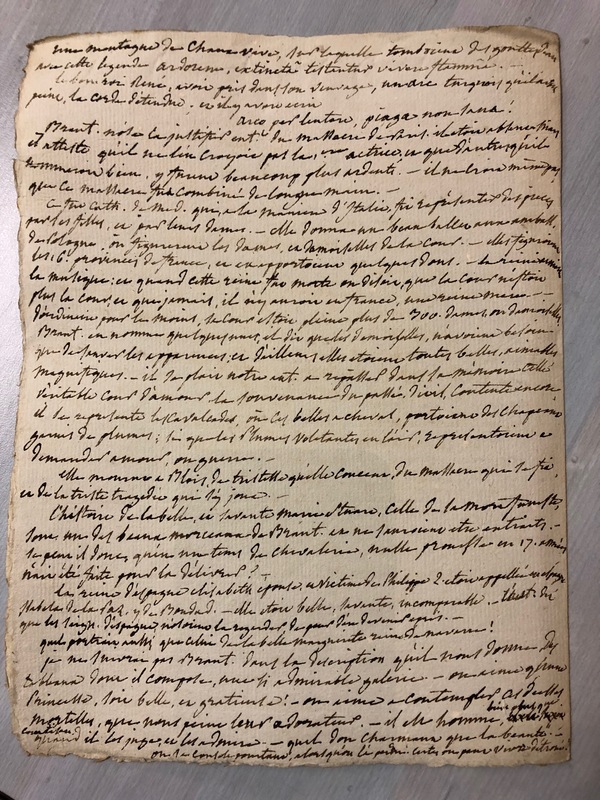 une montagne de Chaux vive, sur laquelle tomboient des gouttes d'eau
avec cette legende ardorem, extincta testantur vivere flamma. —
le bon roi René, avoir pris dans son veuvage, un arc turquois qui la
peine, la corde détendue, et il y avoit écrit
arco per lentare, piaga non sana!
Brant. nous le justifier ent.t du massacre de Paris. étoit absente mais
et atteste qu'il ne l'en croyoit pas la, 1.ere actrice, et que d'autres qu'il
nommeroit bien, y furent beaucoup plus ardents. — il ne croit même pas
que ce massacre fut combiné de longue main. —
C'etoit Cath. de Med. qui, a la manière d'Italie, fit représenter des pieces
par les filles, et par leurs dames. — elle donna un beau ballet aux ambass.
de Pologne, où figurerent les dames, et damoiselles de la Cour. — elles figuroient
les 16 provinces de france, et en apportoient quelques dons. — la reine aimoit
la musique; et quand cette reine fut morte on disoit, que la Cour n'étoit
plus la cour, et que jamais, il n'y auroit en france, une reine mere. —
d'ordinaire pour le moins, sa Cour étoit pleine plus de 300. dames, ou damoiselles
Brant. en nomme quelques unes, et dit que les damoiselles, n'avoient besoin
que de sauver les apparences; et d'ailleurs elles etoient toutes belles, aimables
magnifiques. — il se plait notre aut. a repasser dans sa mémoire cette
véritable cour d'amour la souvenance du passé, dit-il, Contente encore
il se represente les cavalcades, où ces belles a cheval, portoient des chapeaux
garnis de plumes; si que les plumes volitantes en l'air, representoient a
demander amour, ou guerre. —
elle mourut a Blois, de tristesse qu'elle conceut, du massacre qui se fit,
et de la triste tragedie qui s'y joua. —
L'histoire de la belle, et savante marie Stuart, celle de sa mort funeste,
sont un des beaux morceaux de Brant. et ne sauroient etre extraits. —
se peut il donc, qu'en un tems de chevalerie, nulle prouesse en 17. années
n'ait été faite pour la délivrer? —
La reine d'espagne elisabeth epouse, et victime de Philippe 2. etoit appellée en espagne
Ysabel de la Paz, y de bondad. — elle etoit belle, savante, incomparable. — Brant. dit
que les seign. d'espagne, n'osoient la regarder de peur d'en devenir epris. —
quel portrait aussi que celui de la belle marguerite reine de navarre!
je ne suivrai pas Brant. dans la description qu'il nous donne des
tableaux dont il compose, une si admirable galerie. — on aime q'une
Princesse, soit belle, et gratieuse! — on aime a contempler ces belles
mortelles, que nous peint leur adorateur. — il est homme, bien plus que
courtisan, quand il les juge, et les admire. — quel don charmant que la beauté. —
on se console pourtant, alors qu'on l'a perdu: certes on peut vivre détrôné!